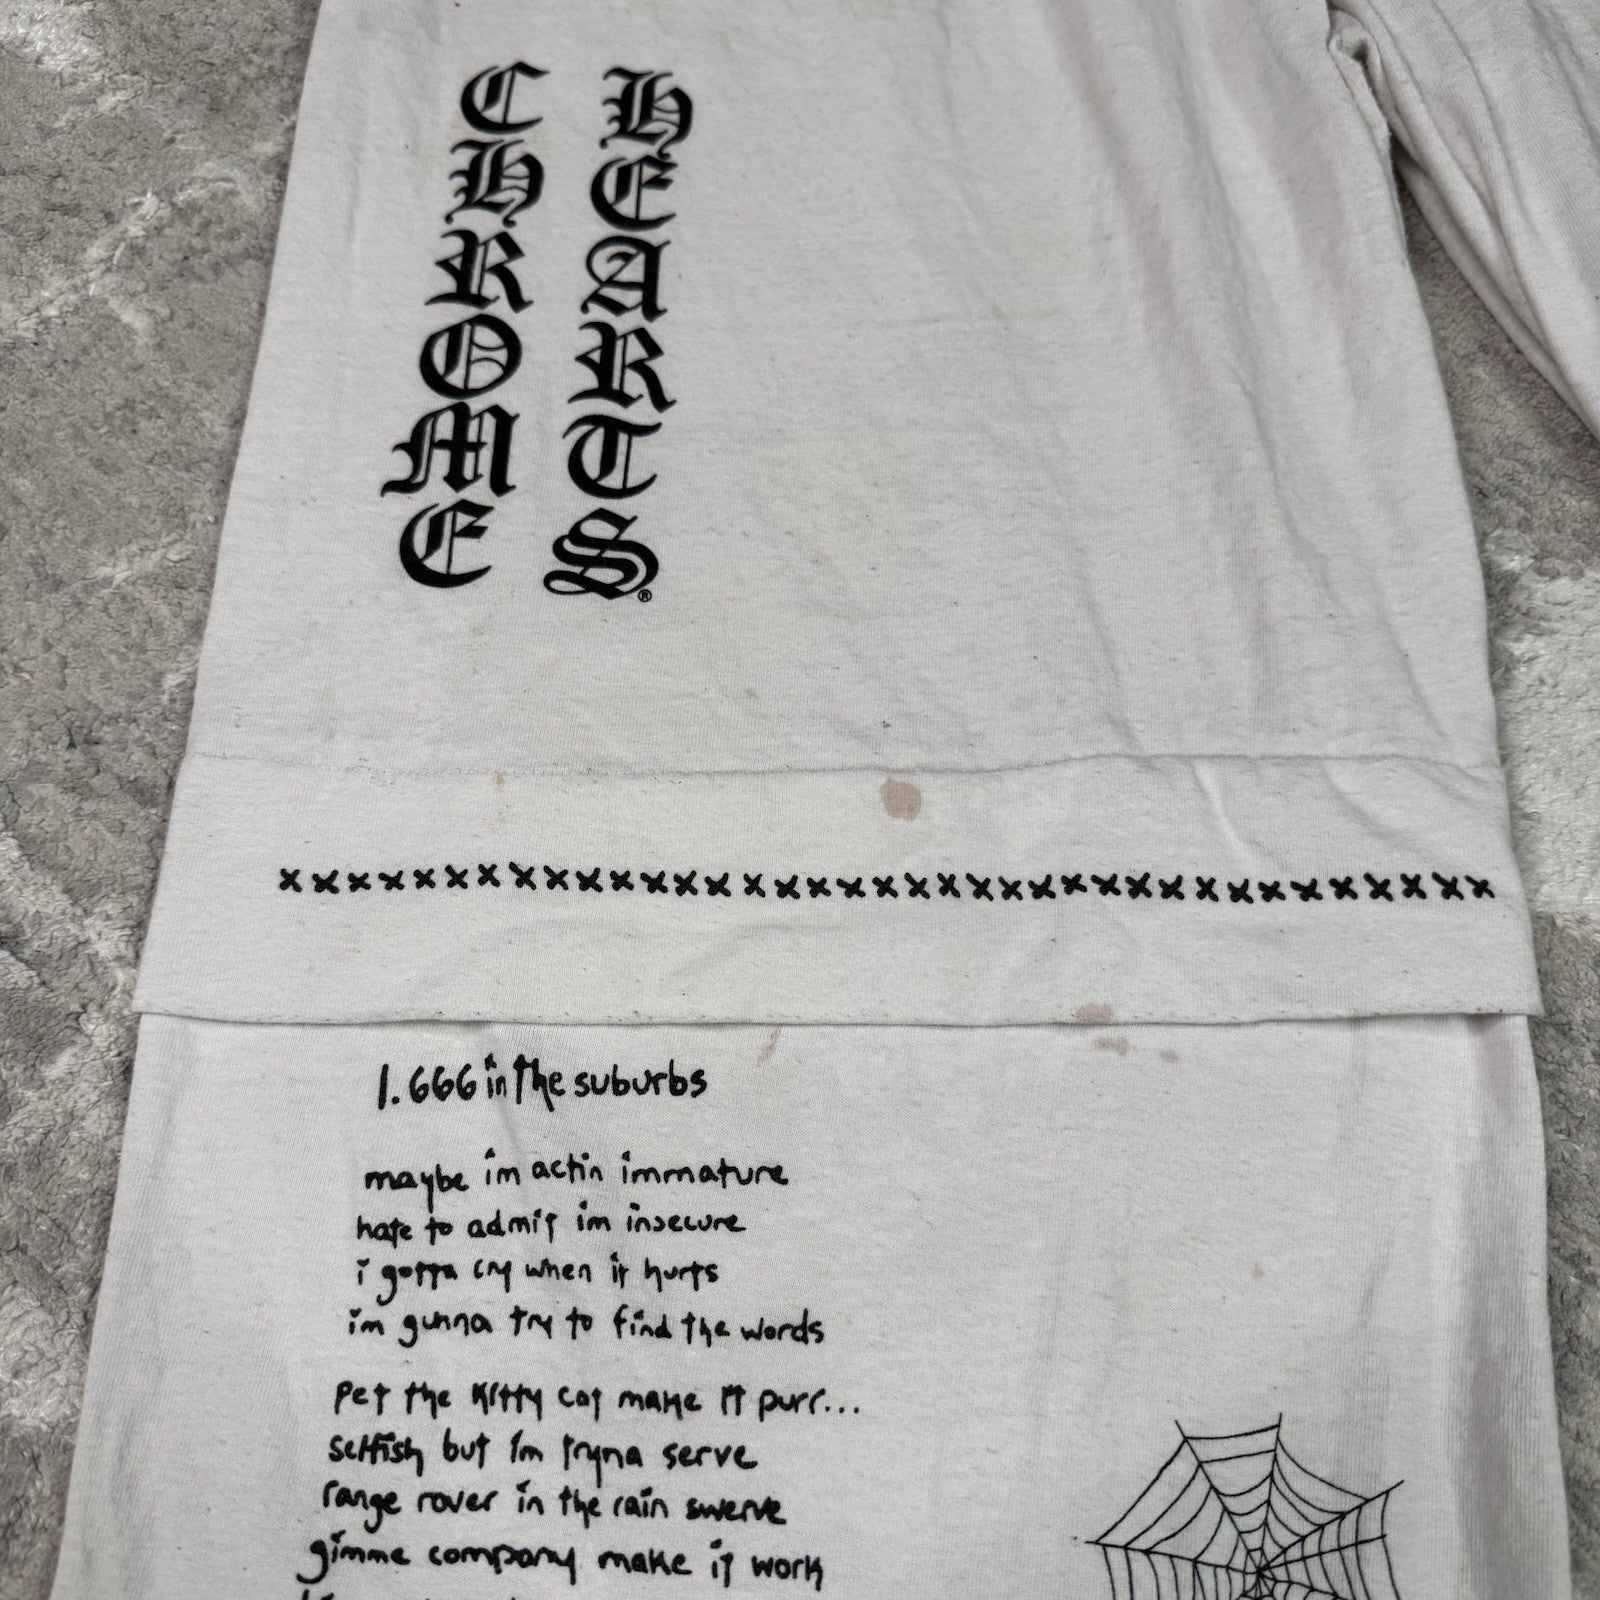 CHROME
HEARTS®
xxxxxxxxxxxxxxxxxxxxxxxxxxxxxxxxxxxxxx
1. 666 in the suburbs
maybe im actin immature
hate to admit im insecure
i gotta cry when it hurts
im gunna try to find the words
pet the kitty cat make it purr...
selfish but im tryna serve
range rover in the rain swerve
gimme company make it work